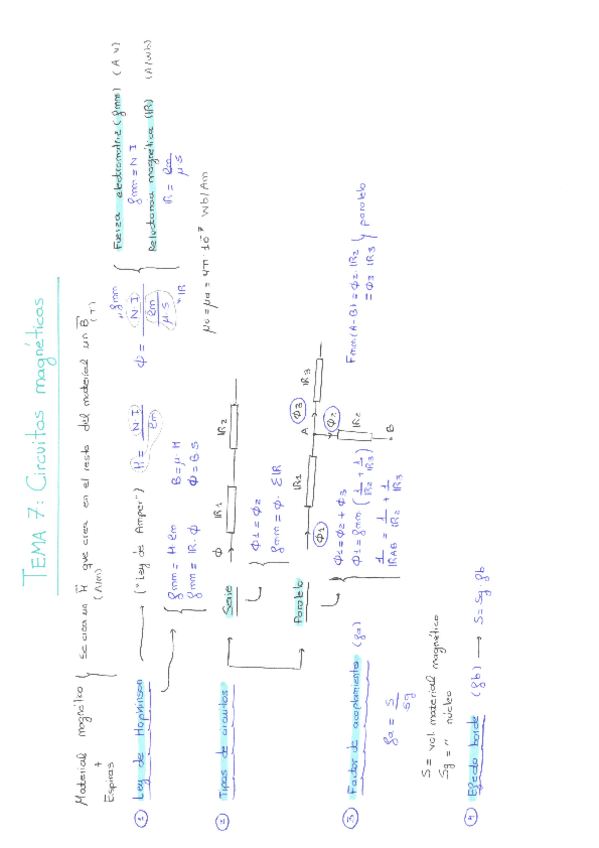 TEMA 7: Circuitos magnéticos
Material magnético + Espiras { se crea un H⃗ (A/m) que crea en el resto del material un B⃗ (T)
① Ley de Hopkinson → ("Ley de Amper") H = N·I / lm
Φ = N·I / (lm / μ·S) "fmm "IR
{ Fuerza electromotriz (fmm) (A v)
fmm = N·I
Reluctancia magnética (IR) (A/wb)
IR = lm / μ·S
{ fmm = H·lm B = μ·H
fmm = IR·Φ Φ = B·S
μ0 = μa = 4π·10⁻⁷ Wb/Am
② Tipos de circuitos
Serie Φ IR1 IR2
{ Φ1 = Φ2
fmm = Φ·ΣIR
Paralelo Φ1 IR1 A Φ3 IR3 Φ2 IR2 B
{ Φ1 = Φ2 + Φ3
Φ1 = fmm (1/IR2 + 1/IR3)
1/IRAB = 1/IR2 + 1/IR3
Fmm(A-B) = Φ2·IR2
= Φ3·IR3 } paralelo
③ Factor de acoplamiento (fa)
fa = S / Sg
S = vol. material magnético
Sg = " núcleo
④ Efecto borde (fb) → S = Sg·fb